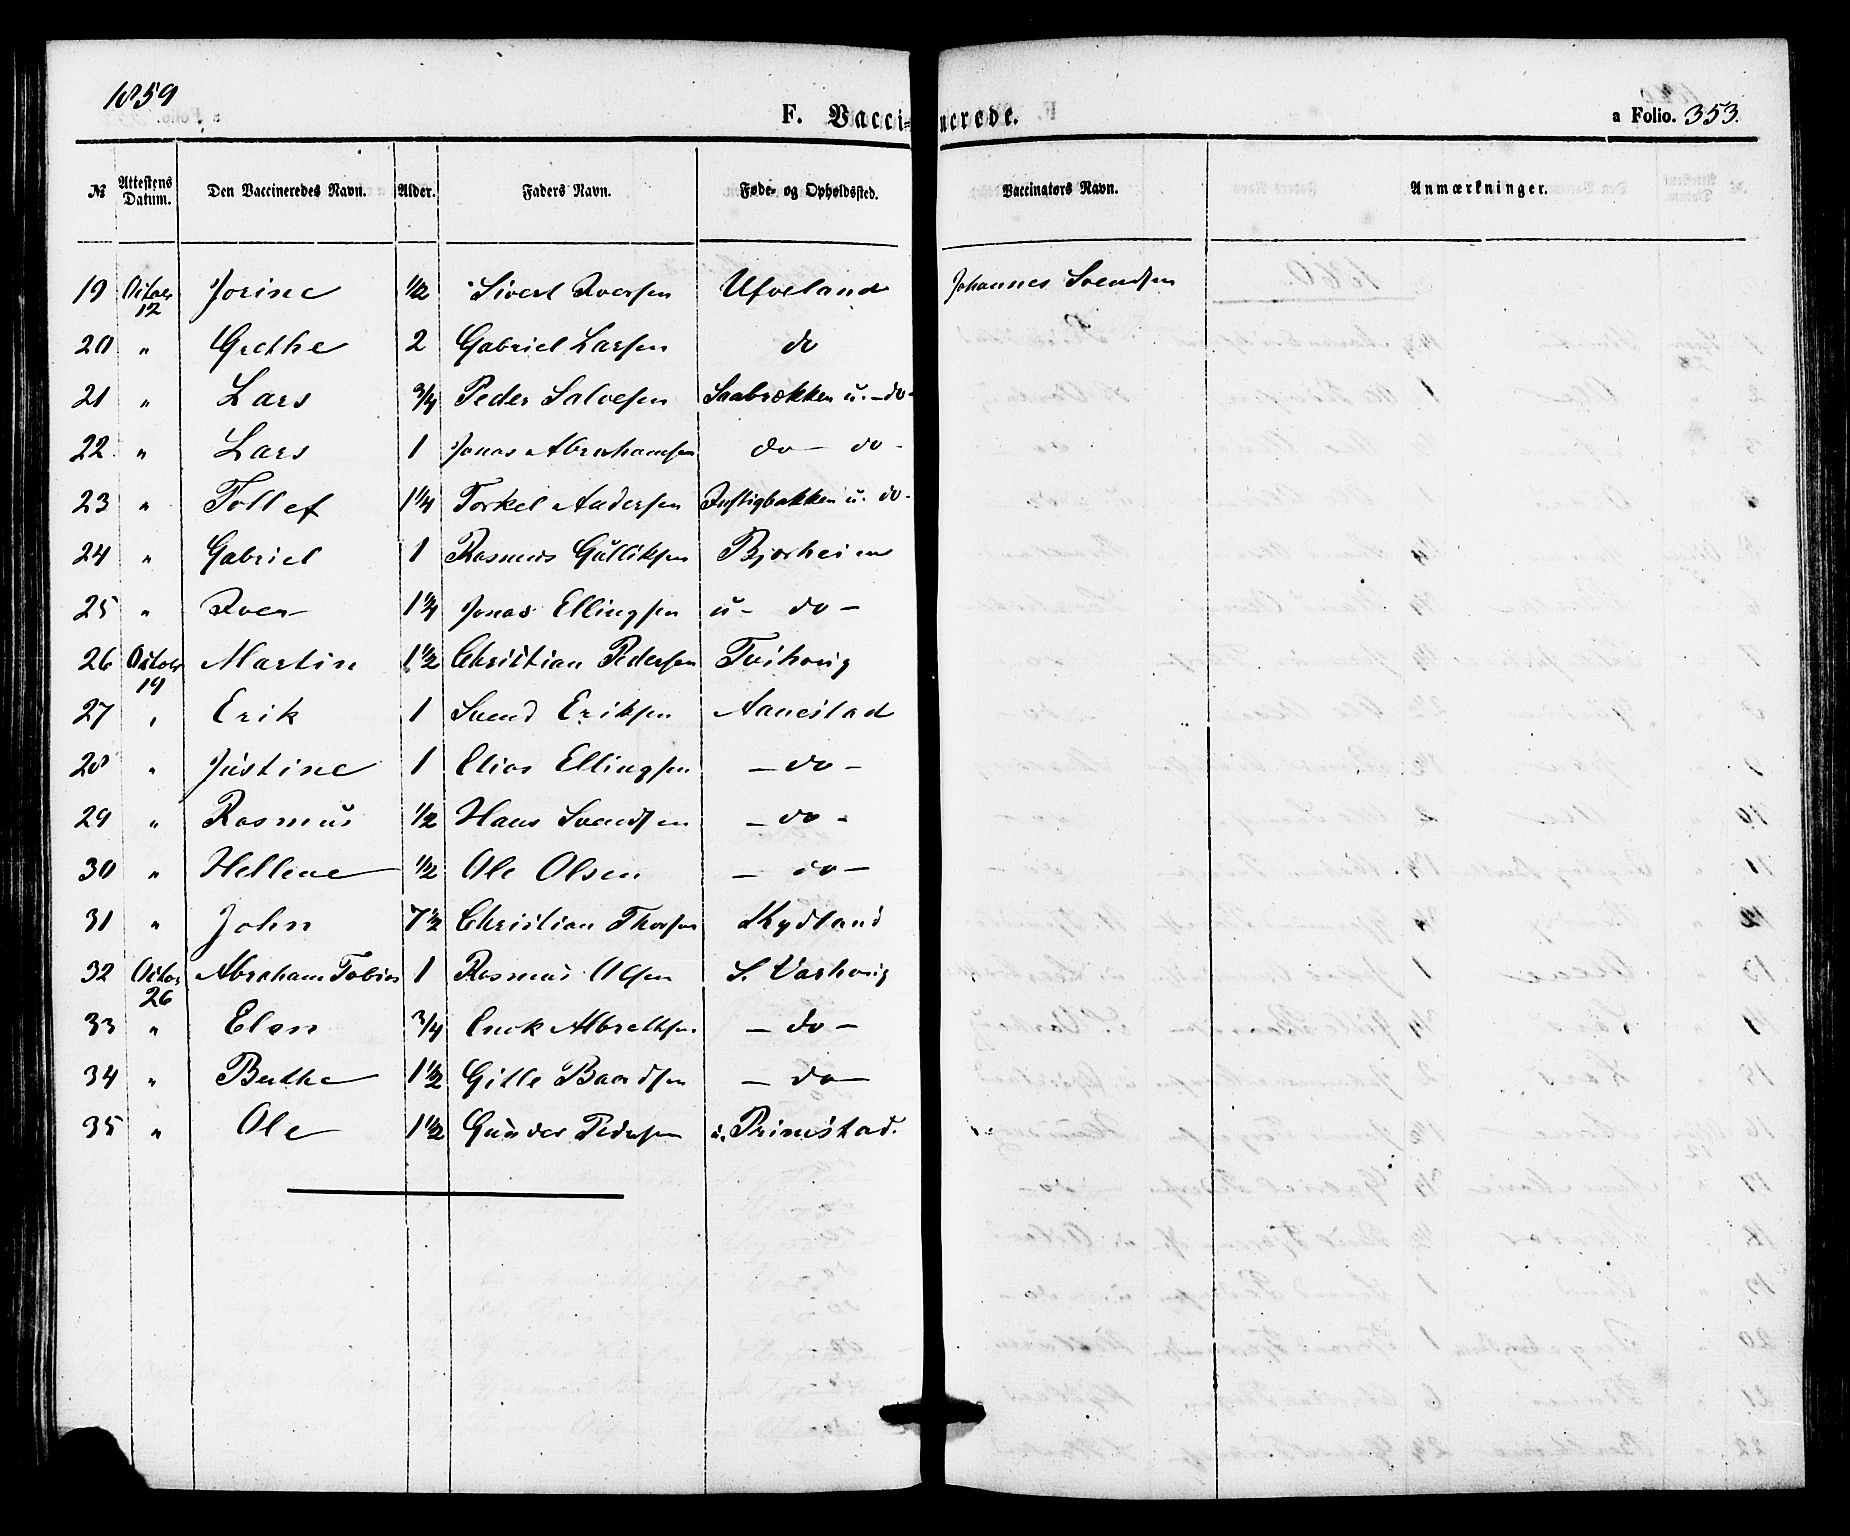 1859
F. Vaccinerede.
a Folio. 353.
№ Attestens Datum. Den Vaccineredes Navn. Alder. Faders Navn. Føde- og Opholdssted. Vaccinators Navn. Anmærkninger.
19 October 12 Jorine 1/2 Sivert Iversen Ufveland Johannes Svendsen
20 " Grethe 2 Gabriel Larsen do
21 " Lars 3/4 Peder Salvesen Saabrækken u. -do-
22 " Lars 1 Jonas Abrahamsen do- do-
23 " Tollef 1 1/4 Torkel Andersen u. do-
24 " Gabriel 1 Rasmus Gulliksen Bjorheim
25 " Iver 1 1/4 Jonas Ellingsen u- do-
26 October 19 Martin 1 1/2 Christian Pedersen Tvihoug
27 " Erik 1 Svend Eriksen Aanestad
28 " Justine 1 Elias Ellingsen -do-
29 " Rasmus 1/2 Hans Svendsen -do-
30 " Hellene 1/2 Ole Olsen -do-
31 " John 7 1/2 Christian Thorsen Kydland
32 October 26 Abraham Tobias 1 Rasmus Olsen S. Varhoug
33 " Elen 3/4 Enok Albrethsen -do-
34 " Berthe 1 1/2 Gitle Baardsen -do-
35 " Ole 1 1/2 Gunder Pedersen u. Primstad.